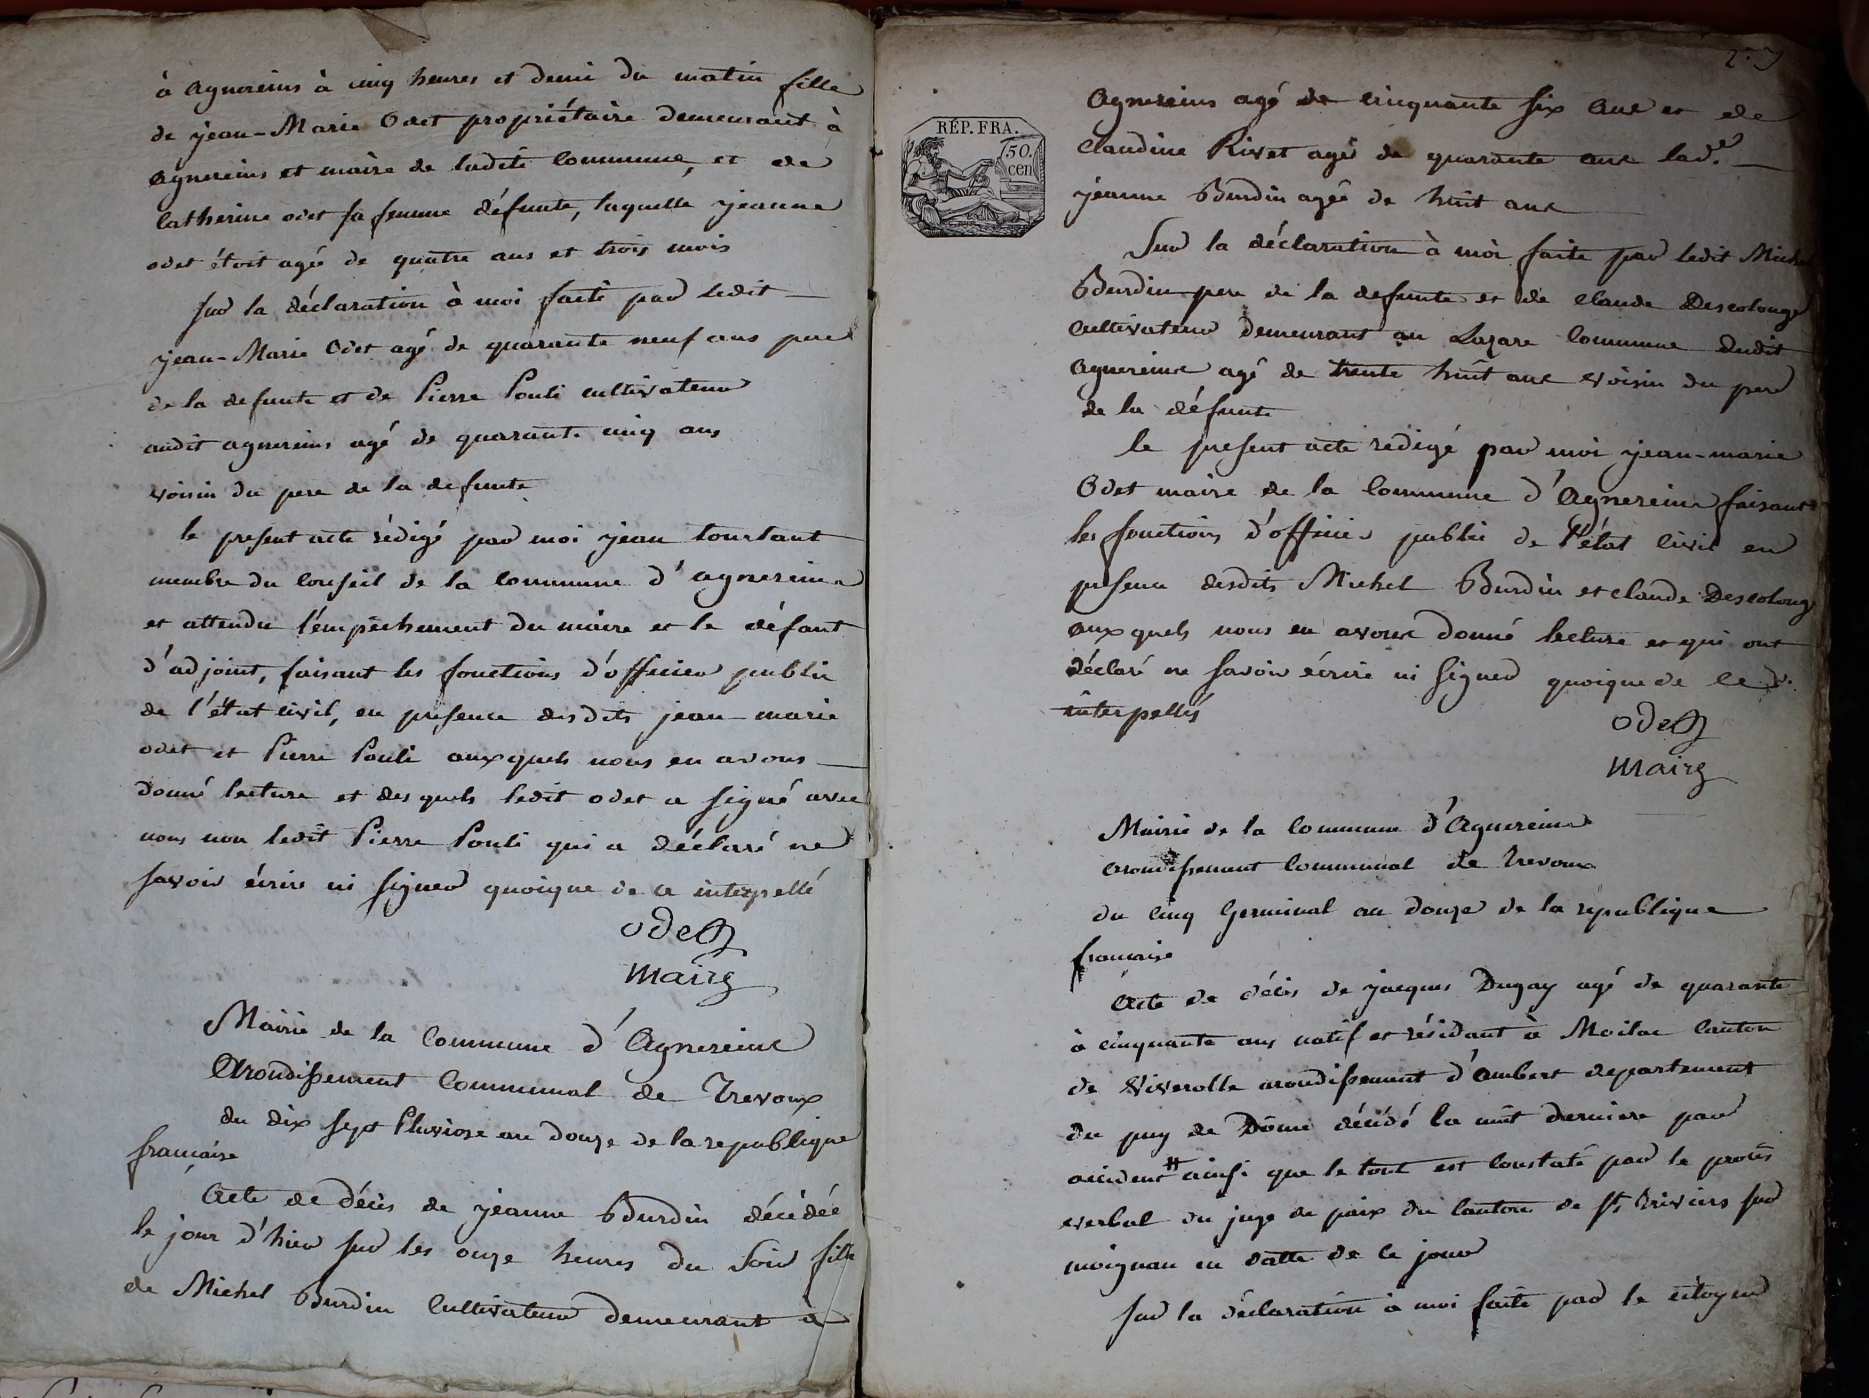 à agnereins à cinq heures et demi du matin fille
de jean-Marie Odet propriétaire demeurant à
agnereins et maire de ladite Commune, et de
Catherine odet sa femme défunte, laquelle jeanne
odet étoit agée de quatre ans et trois mois
sur la déclaration à moi faite par ledit
jean-Marie Odet agé de quarante neuf ans pere
de la defunte et de Pierre Ponti cultivateur
audit agnereins agé de quarante cinq ans
voisin du pere de la defunte
le present acte rédigé par moi jean
membre du Conseil de la Commune d'agnereins
et attendu l'empêchement du maire et le défaut
d'adjoint, faisant les fonctions d'officier public
de l'état civil, en presence desdits jean-marie
odet et Pierre Ponti auxquels nous en avons
donné lecture et desquels ledit odet a signé avec
nous non ledit Pierre Ponti qui a déclaré ne
savoir écrire ni signer quoique de ce interpellé
odet
maire
Mairie de la Commune d'Agnereins
Arondissement Communal de Trevoux
du dix sept Pluviose an douze de la republique
francaise
Acte de décès de jeanne Burdin décédée
le jour d'hier sur les onze heures du Soir fille
de Michel Burdin Cultivateur demeurant à
RÉP. FRA.
50.
cen
Agnereins agé de cinquante six ans et de
Claudine Rivet agée de quarante ans lad.e
jeanne Burdin agée de huit ans
Sur la déclaration à moi faite par ledit Michel
Burdin pere de la defunte et de Claude Descolonge
cultivateur demeurant au Lazare Commune dudit
Agnereins agé de trente huit ans voisin du pere
de la défunte
le present acte redigé par moi jean-marie
Odet maire de la Commune d'Agnereins faisant
les fonctions d'officier public de l'état Civil en
presence desdits Michel Burdin et claude Descolonge
auxquels nous en avons donné lecture et qui ont
déclaré ne savoir écrire ni signer quoique de ce
interpellés
odet
maire
Mairie de la Commune d'Agnereins
arondissement Communal de Trevoux
du cinq Germinal an douze de la republique
francaise
Acte de décès de jacques Dugay agé de quarante
à cinquante ans natif et résidant à Moilac Canton
de Viverolle arondissement d'ambert departement
du puy de Dôme décédé la nuit derniere par
accident # ainsi que le tout est Constaté par le procès
verbal du juge de paix du Canton de St Triviers sur
moignan en datte de ce jour
sur la déclaration à moi faite par le citoyen